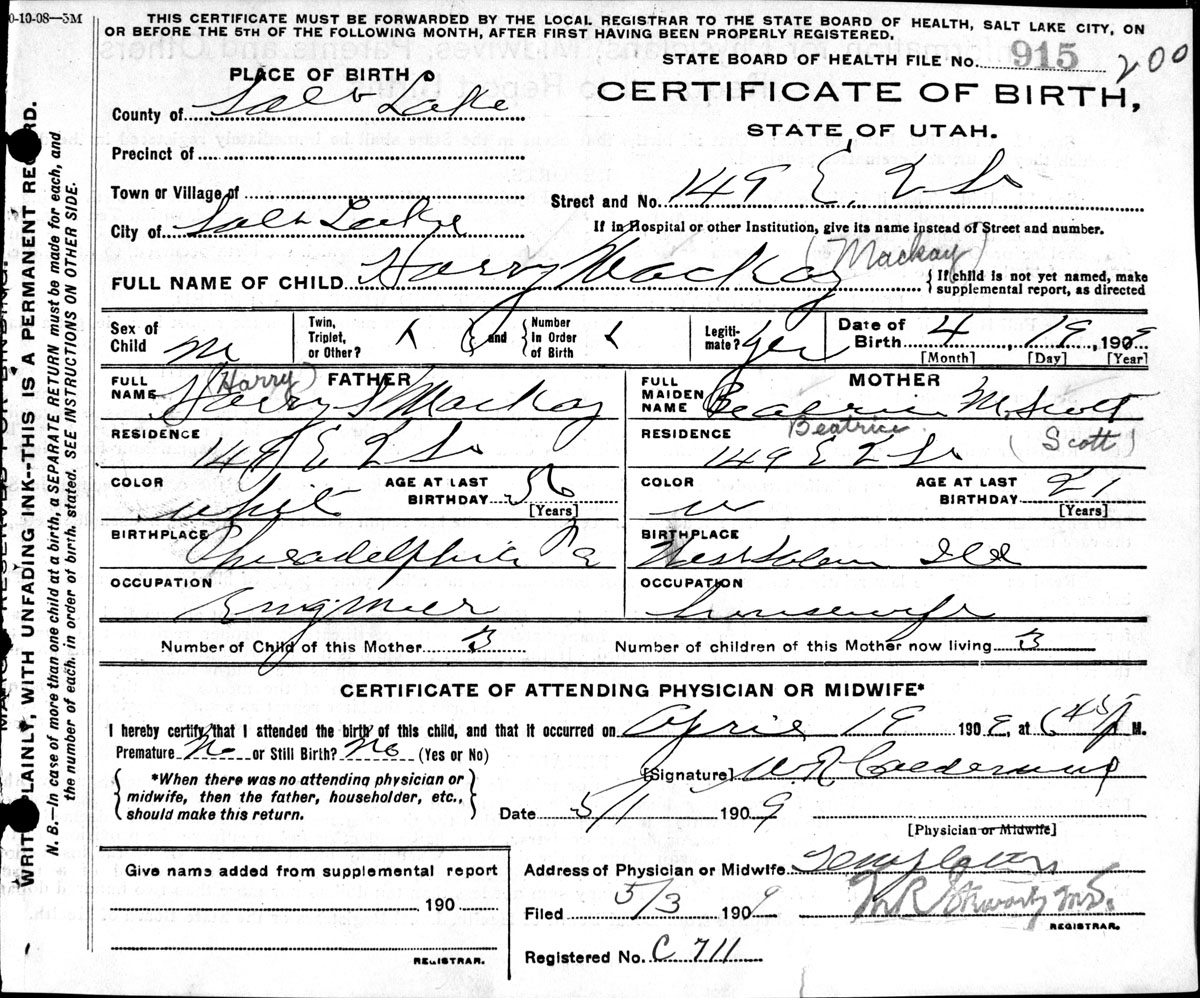 0-10-08—5M
THIS CERTIFICATE MUST BE FORWARDED BY THE LOCAL REGISTRAR TO THE STATE BOARD OF HEALTH, SALT LAKE CITY, ON
OR BEFORE THE 5TH OF THE FOLLOWING MONTH, AFTER FIRST HAVING BEEN PROPERLY REGISTERED.
STATE BOARD OF HEALTH FILE No. 915 200
PLACE OF BIRTH
CERTIFICATE OF BIRTH,
STATE OF UTAH.
County of Salt Lake
Precinct of
Town or Village of
Street and No. 149 E. 2 So
City of Salt Lake
If in Hospital or other Institution, give its name instead of Street and number.
FULL NAME OF CHILD Harry Mackay (Mackay)
{If child is not yet named, make
supplemental report, as directed
Sex of Child M
Twin, Triplet, or Other?
and
Number In Order of Birth
Legiti- mate? Yes
Date of Birth 4 19, 1909
[Month] [Day] [Year]
FATHER
FULL NAME Harry S Mackay (Harry)
RESIDENCE 149 E 2 So
COLOR White
AGE AT LAST BIRTHDAY 36 [Years]
BIRTHPLACE Philadelphia Pa
OCCUPATION Engineer
MOTHER
FULL MAIDEN NAME Beatrice M. Scott
Beatrice (Scott)
RESIDENCE 149 E 2 So
COLOR W
AGE AT LAST BIRTHDAY 21 [Years]
BIRTHPLACE West Salem Ill
OCCUPATION housewife
Number of Child of this Mother 3
Number of children of this Mother now living 3
CERTIFICATE OF ATTENDING PHYSICIAN OR MIDWIFE*
I hereby certify that I attended the birth of this child, and that it occurred on April 19 1909, at 6 45 P M.
Premature No or Still Birth? No (Yes or No)
*When there was no attending physician or
midwife, then the father, householder, etc.,
should make this return.
[Signature] W. R. Calderwood
Date 5/1 1909
[Physician or Midwife]
Address of Physician or Midwife
Filed 5/3 1909
M R Stewart M.D.
REGISTRAR.
Registered No. C 711
Give name added from supplemental report
190
REGISTRAR.
RESERVED FOR BINDING.
WRITE PLAINLY, WITH UNFADING INK--THIS IS A PERMANENT RECORD.
N. B.—In case of more than one child at a birth, a SEPARATE RETURN must be made for each, and
the number of each, in order of birth, stated. SEE INSTRUCTIONS ON OTHER SIDE.